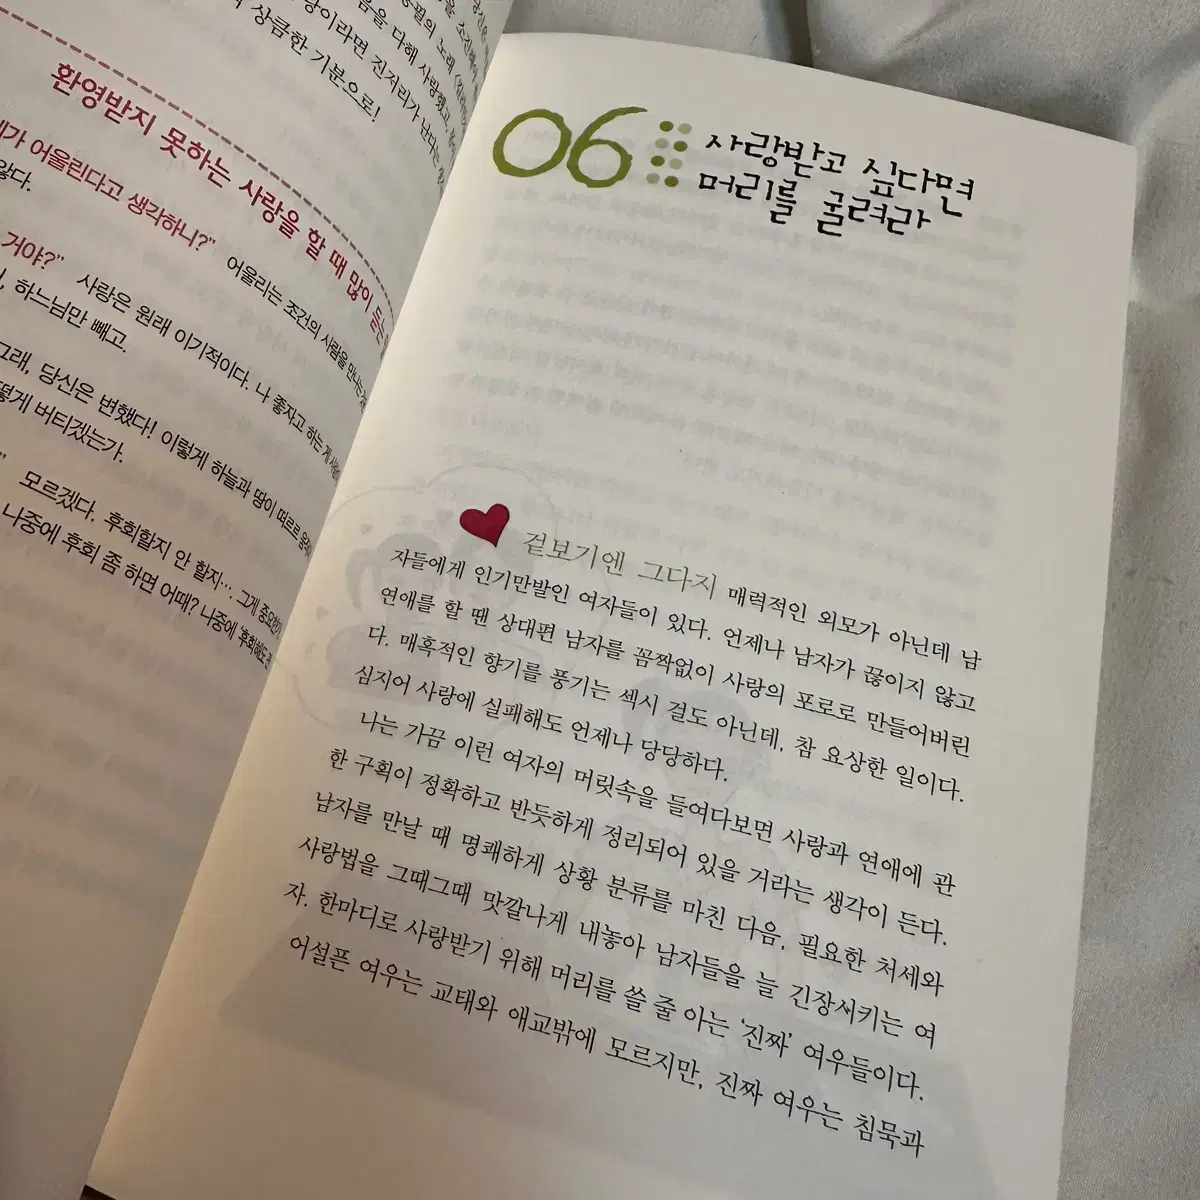 사랑했고,
음을 다해
랑이라면 진저리가 난다는
상큼한 기분으로!
환영받지 못하는 사랑을 할 때 많이 듣는
가 어울린다고 생각하니?" 어울리는 조건의 사람을 만나는
않다.
거야?" 사랑은 원래 이기적이다. 나 좋자고 하는 게
하느님만 빼고.
그래, 당신은 변했다! 이렇게 하늘과 땅이
떻게 버티겠는가.
모르겠다. 후회할지 안 할지…. 그게
나중에 후회 좀 하면 어때? 나중에
06
사랑받고 싶다면
머리를 굴려라
겉보기엔 그다지 매력적인 외모가 아닌데 남
자들에게 인기만발인 여자들이 있다. 언제나 남자가 끊이지 않고
연애를 할 땐 상대편 남자를 꼼짝없이 사랑의 포로로 만들어버린
다. 매혹적인 향기를 풍기는 섹시 걸도 아닌데, 참 요상한 일이다.
심지어 사랑에 실패해도 언제나 당당하다.
나는 가끔 이런 여자의 머릿속을 들여다보면 사랑과 연애에 관
한 구획이 정확하고 반듯하게 정리되어 있을 거라는 생각이 든다.
남자를 만날 때 명쾌하게 상황 분류를 마친 다음, 필요한 처세와
사랑법을 그때그때 맛깔나게 내놓아 남자들을 늘 긴장시키는 여
자. 한마디로 사랑받기 위해 머리를 쓸 줄 아는 '진짜' 여우들이다.
어설픈 여우는 교태와 애교밖에 모르지만, 진짜 여우는 침묵과